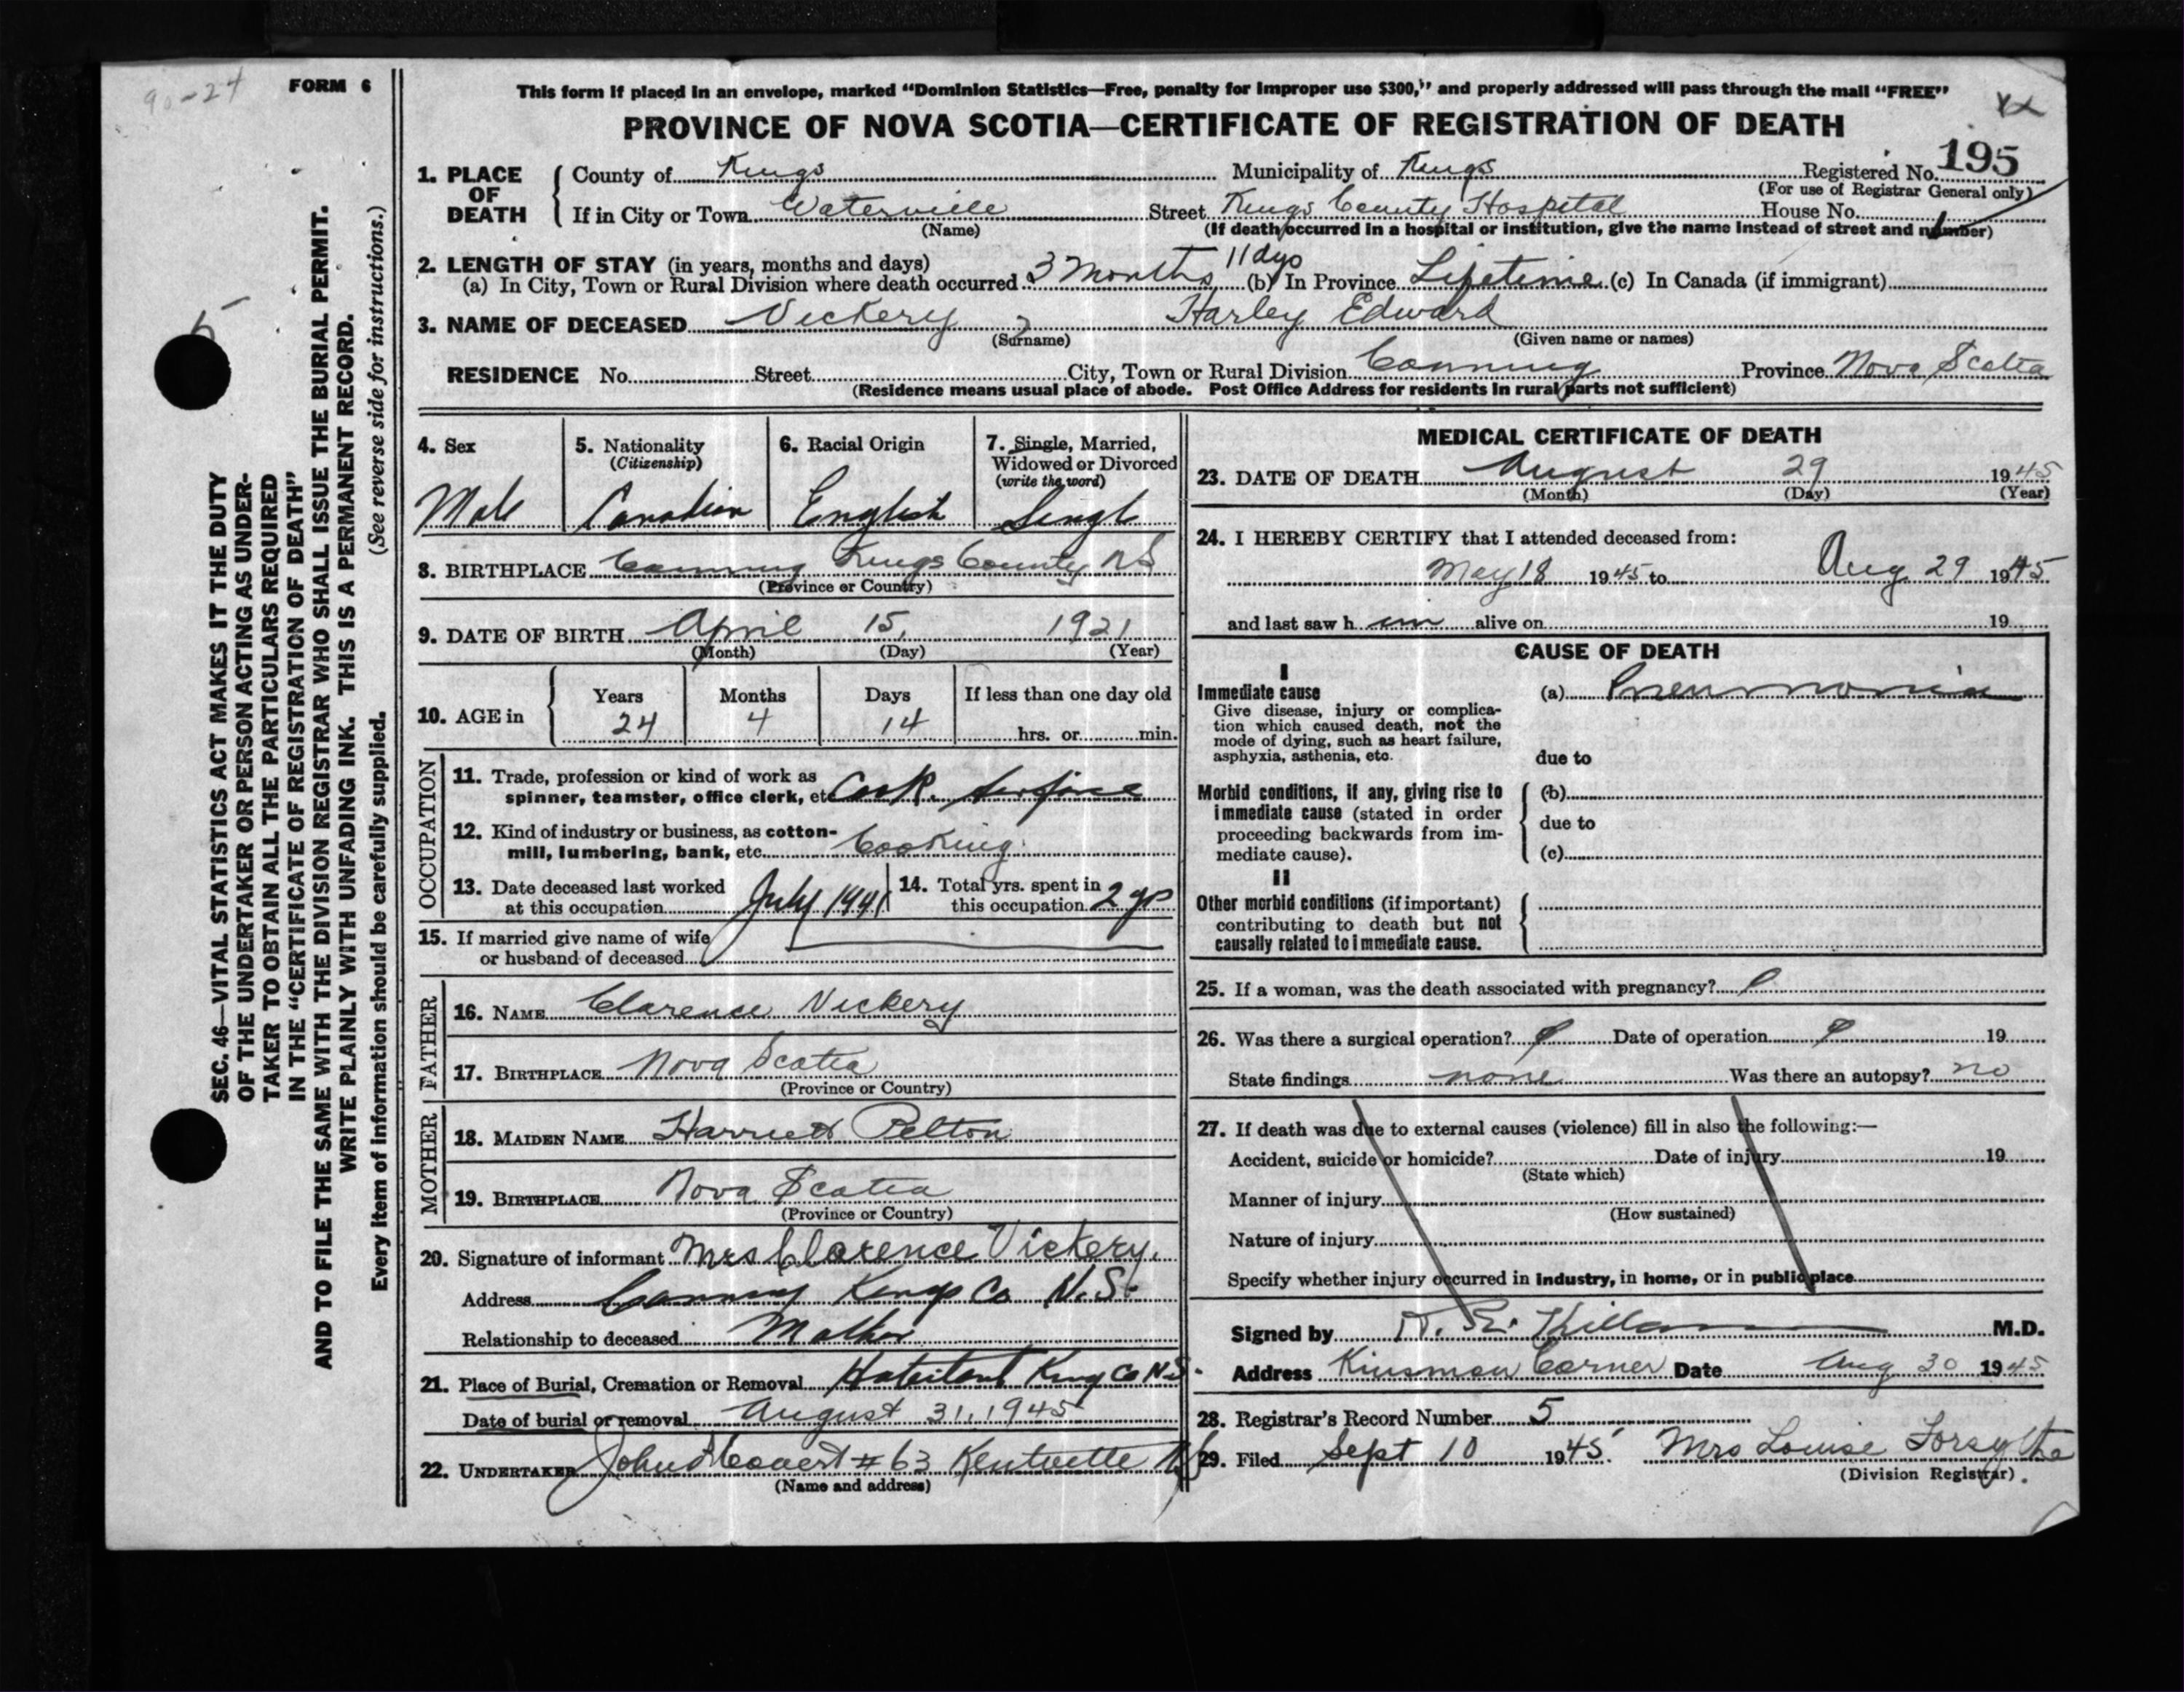 90-24
FORM 6
This form if placed in an envelope, marked "Dominion Statistics—Free, penalty for improper use $300," and properly addressed will pass through the mail "FREE"
PROVINCE OF NOVA SCOTIA—CERTIFICATE OF REGISTRATION OF DEATH
1. PLACE OF DEATH
County of Kings Municipality of Kings Registered No. 195
(For use of Registrar General only)
If in City or Town Waterville Street Kings County Hospital House No.
(Name) (If death occurred in a hospital or institution, give the name instead of street and number)
2. LENGTH OF STAY (in years, months and days)
(a) In City, Town or Rural Division where death occurred 3 months 11 dys (b) In Province Lifetime (c) In Canada (if immigrant)
3. NAME OF DECEASED Vickery Harley Edward
(Surname) (Given name or names)
RESIDENCE No. Street City, Town or Rural Division Canning Province Nova Scotia
(Residence means usual place of abode. Post Office Address for residents in rural parts not sufficient)
SEC. 46—VITAL STATISTICS ACT MAKES IT THE DUTY
OF THE UNDERTAKER OR PERSON ACTING AS UNDER-
TAKER TO OBTAIN ALL THE PARTICULARS REQUIRED
IN THE "CERTIFICATE OF REGISTRATION OF DEATH"
AND TO FILE THE SAME WITH THE DIVISION REGISTRAR WHO SHALL ISSUE THE BURIAL PERMIT.
WRITE PLAINLY WITH UNFADING INK. THIS IS A PERMANENT RECORD.
Every item of information should be carefully supplied. (See reverse side for instructions.)
5
4. Sex
Male
5. Nationality
(Citizenship)
Canadian
6. Racial Origin
English
7. Single, Married,
Widowed or Divorced
(write the word)
Singl
8. BIRTHPLACE Canning Kings County NS
(Province or Country)
9. DATE OF BIRTH April 15, 1921
(Month) (Day) (Year)
10. AGE in
Years Months Days If less than one day old
24 4 14 hrs. or min.
OCCUPATION
11. Trade, profession or kind of work as
spinner, teamster, office clerk, etc Cook. Airforce
12. Kind of industry or business, as cotton-
mill, lumbering, bank, etc. Cooking
13. Date deceased last worked
at this occupation July 1941
14. Total yrs. spent in
this occupation 2 yrs
15. If married give name of wife
or husband of deceased
FATHER
16. NAME Clarence Vickery
17. BIRTHPLACE Nova Scotia
(Province or Country)
MOTHER
18. MAIDEN NAME Harriet Pelton
19. BIRTHPLACE Nova Scotia
(Province or Country)
20. Signature of informant Mrs Clarence Vickery.
Address Canning Kings Co N.S.
Relationship to deceased Mother
21. Place of Burial, Cremation or Removal Habitant King Co N.S.
Date of burial or removal August 31, 1945
22. UNDERTAKER John # 63 Kentville NS
(Name and address)
MEDICAL CERTIFICATE OF DEATH
23. DATE OF DEATH August 29 1945
(Month) (Day) (Year)
24. I HEREBY CERTIFY that I attended deceased from:
May 18 1945 to Aug 29 1945
and last saw h im alive on 19
CAUSE OF DEATH
I
Immediate cause (a) Pneumonia
Give disease, injury or complica-
tion which caused death, not the
mode of dying, such as heart failure,
asphyxia, asthenia, etc. due to
Morbid conditions, if any, giving rise to (b)
immediate cause (stated in order due to
proceeding backwards from im-
mediate cause). (c)
II
Other morbid conditions (if important)
contributing to death but not
causally related to immediate cause.
25. If a woman, was the death associated with pregnancy?
26. Was there a surgical operation? Date of operation 19
State findings none Was there an autopsy? no
27. If death was due to external causes (violence) fill in also the following:—
Accident, suicide or homicide? Date of injury 19
(State which)
Manner of injury
(How sustained)
Nature of injury
Specify whether injury occurred in industry, in home, or in public place
Signed by M.D.
Address Kinsman Corner Date Aug 30 1945
28. Registrar's Record Number 5
29. Filed Sept 10 1945. Mrs Louise Forsythe
(Division Registrar).